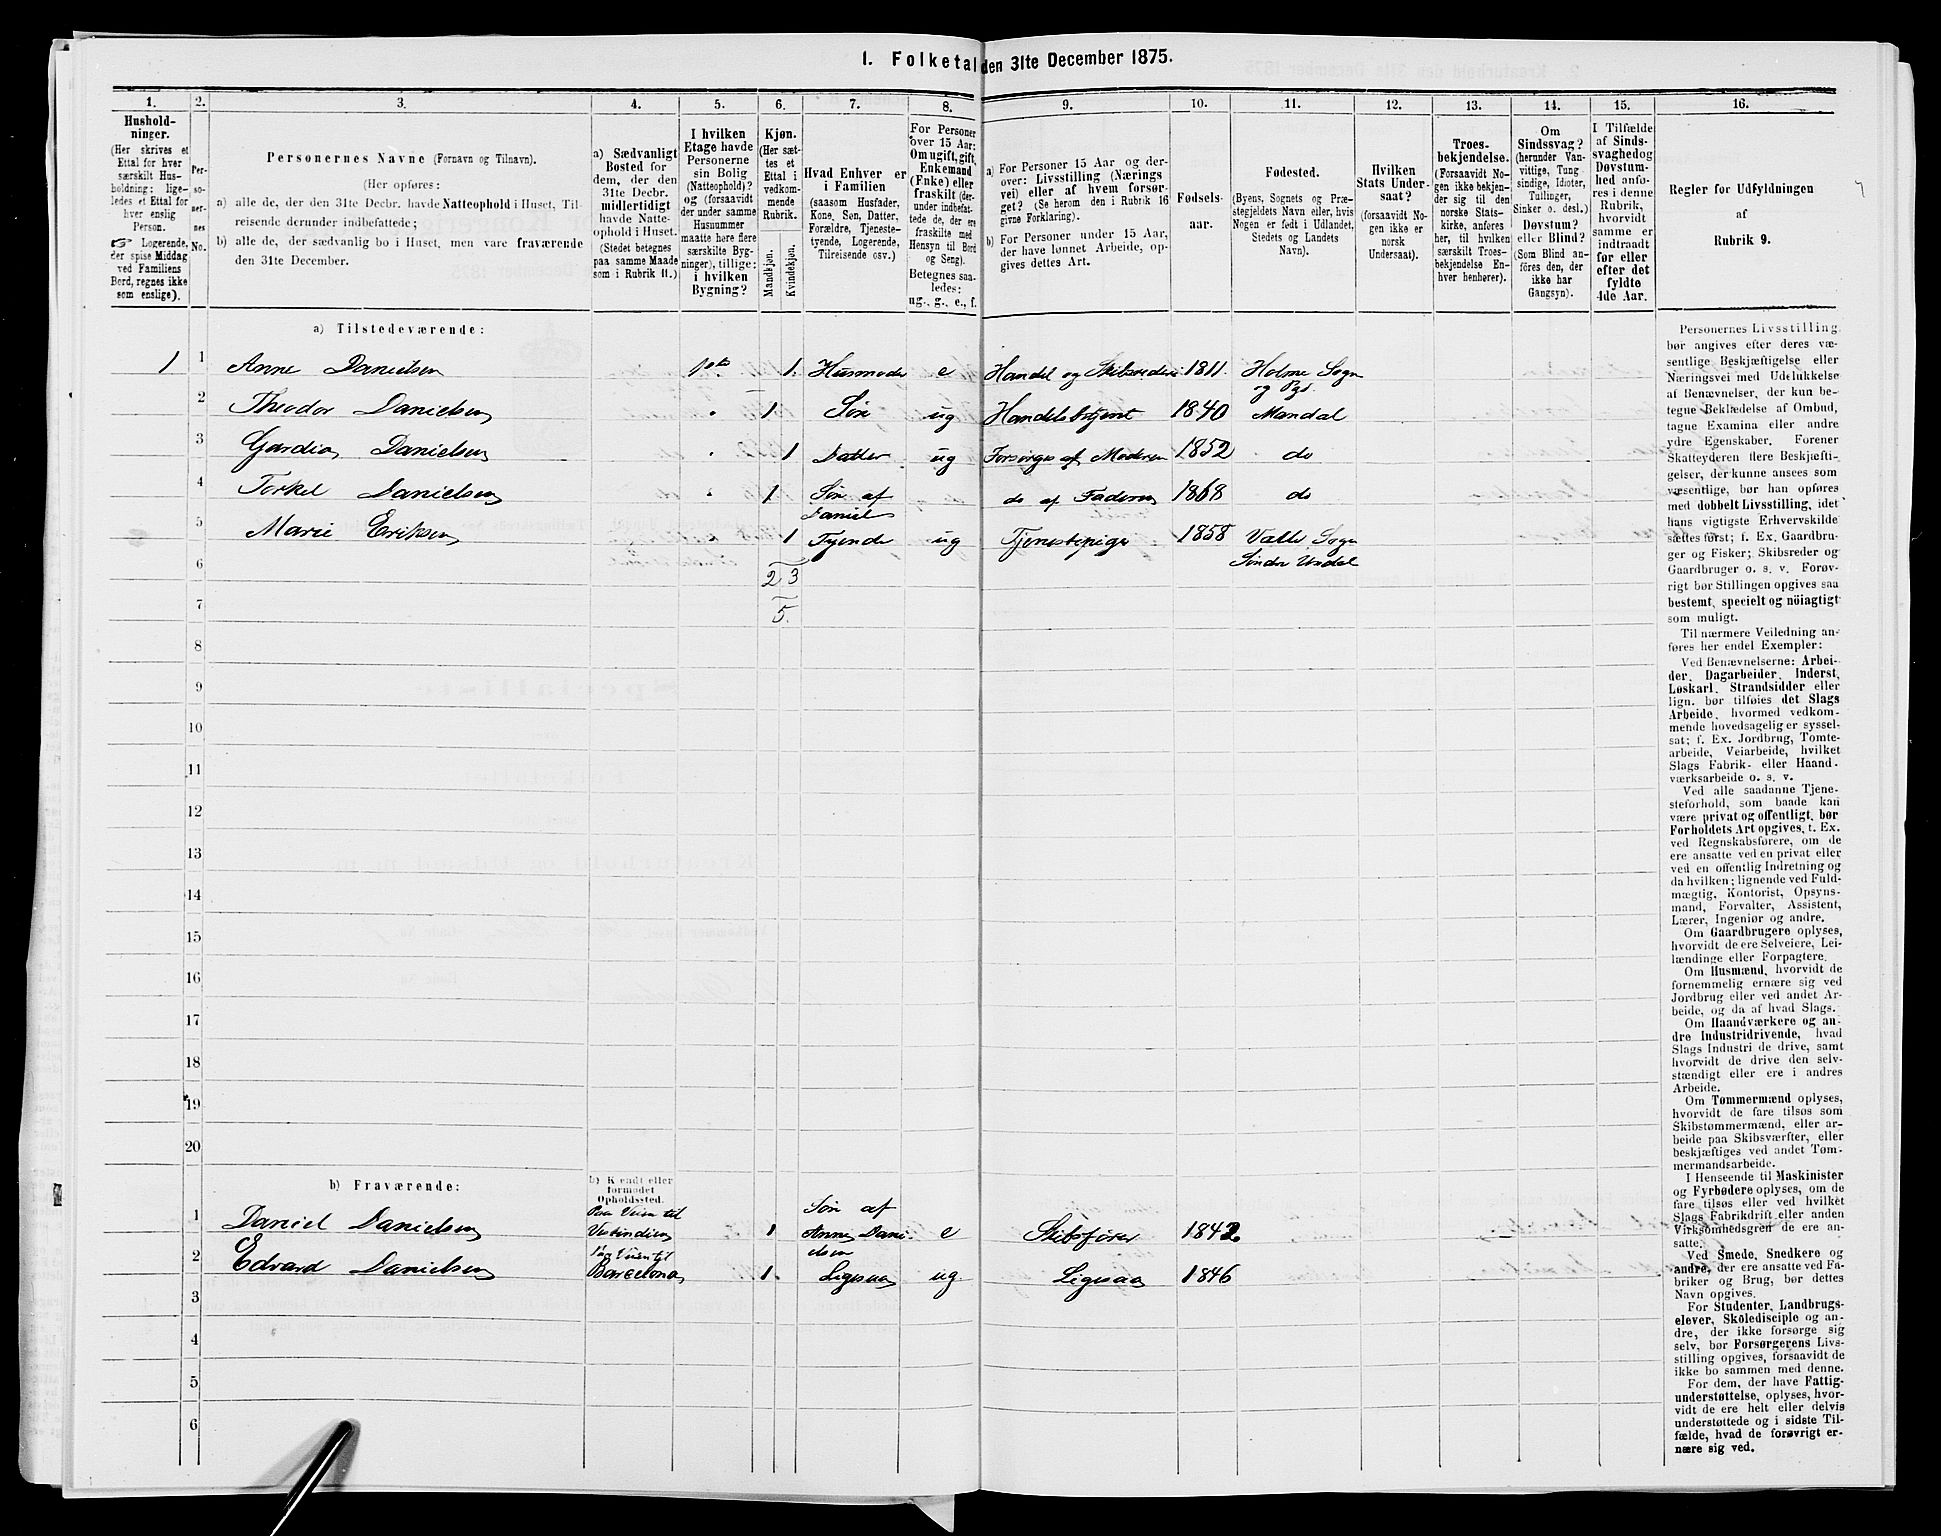 1. Folketal den 31te December 1875.
1. 2. 3. 4. 5. 6. 7. 8. 9. 10. 11. 12. 13. 14. 15. 16.
Hushold-
ninger.
(Her skrives et
Ettal for hver
særskilt Hus-
holdning; lige-
ledes et Ettal for
hver enslig
Person.
☞ Logerende,
der spise Middag
ved Familiens
Bord, regnes ikke
som enslige).
Per-
so-
ner-
nes
No.
Personernes Navne (Fornavn og Tilnavn).
(Her opføres:
a) alle de, der den 31te Decbr. havde Natteophold i Huset, Til-
reisende derunder indbefattede;
b) alle de, der sædvanlig bo i Huset, men vare fraværende
den 31te December.
a) Sædvanligt
Bosted for
dem, der den
31te Decbr.
midlertidigt
havde Natte-
ophold i Huset.
(Stedet betegnes
paa samme Maade
som i Rubrik 11.)
I hvilken
Etage havde
Personerne
sin Bolig
(Natteophold)?
og (forsaavidt
der under samme
Husnummer
maatte høre flere
særskilte Byg-
ninger), tillige:
i hvilken
Bygning?
Kjøn.
(Her sæt-
tes et
Ettal i
vedkom-
mende
Rubrik.
Mandkjøn.
Kvindekjøn.
Hvad Enhver er
i Familien
(saasom Husfader,
Kone, Søn, Datter,
Forældre, Tjeneste-
tyende, Logerende,
Tilreisende osv.)
For Personer
over 15 Aar:
Om ugift, gift,
Enkemand
(Enke) eller
fraskilt (der-
under indbefat-
tede de, der ere
fraskilte med
Hensyn til Bord
og Seng).
Betegnes saa-
ledes:
ug., g., e., f.
a) For Personer 15 Aar og der-
over: Livsstilling (Nærings
vei) eller af hvem forsør-
get? (Se herom den i Rubrik 16
givne Forklaring).
b) For Personer under 15 Aar,
der have lønnet Arbeide, op-
gives dettes Art.
Fødsels-
aar.
Fødested.
(Byens, Sognets og Præ-
stegjeldets Navn eller, hvis
Nogen er født i Udlandet,
Stedets og Landets
Navn).
Hvilken
Stats Under-
saat?
(forsaavidt No-
gen ikke er
norsk
Undersaat).
Troes-
bekjendelse.
(Forsaavidt No-
gen ikke bekjen-
der sig til den
norske Stats-
kirke, anføres
her, til hvilken
særskilt Troes-
bekjendelse En-
hver henhører).
Om
Sindssvag?
(herunder Van-
vittige, Tung
sindige, Idioter,
Tullinger,
Sinker o. desl.)
Døvstum?
eller Blind?
(Som Blind an-
føres den, der
ikke har
Gangsyn).
I Tilfælde
af Sinds-
svaghed og
Døvstum-
hed anfø-
res i denne
Rubrik,
hvorvidt
samme er
indtraadt
før eller
efter det
fyldte
4de Aar.
Regler for Udfyldningen
af
Rubrik 9.
a) Tilstedeværende:
1 1 Anne Danielsen 1ste 1. Husmoder e Handel og Skibsrederi 1811. Holme Sogn
og Pgd.
2 Theodor Danielsen " 1 Søn ug Handelsbetjent 1840 Mandal
3 Gardia Danielsen " 1 Datter ug Forsørges af Moderen 1852 do
4 Torkel Danielsen " 1 Søn af
Daniel do af Faderen 1868 do
5 Marie Eriksen 1 Tyende ug Tjenestepige 1858 Valle Sogn
Søndre Undal
6 2 3
7 5.
8
9
10
11
12
13
14
15
16
17
18
19
20
b) Fraværende:
b) Kjendt eller
formodet
Opholdssted.
1 Daniel Danielsen Paa Veien til
Vestindien 1 Søn af
Anne Dani-
elsen e Skibsfører 1842
2 Edvard Danielsen Paa Veien til
Barcelona 1. Ligesaa ug Ligesaa 1846
3
4
5
6
Personernes Livsstilling
bør angives efter deres væ-
sentlige Beskjæftigelse eller
Næringsvei med Udelukkelse
af Benævnelser, der kun be-
tegne Beklædelse af Ombud,
tagne Examina eller andre
ydre Egenskaber. Forener
Skatteyderen flere Beskjæfti-
gelser, der kunne ansees som
væsentlige, bør han opføres
med dobbelt Livsstilling, idet
hans vigtigste Erhvervskilde
sættes først; f. Ex. Gaardbru-
ger og Fisker; Skibsreder og
Gaardbruger o. s. v. Forøv-
rigt bør Stillingen opgives saa
bestemt, specielt og nöiagtigt
som muligt.
Til nærmere Veiledning an-
føres her endel Exempler:
Ved Benævnelserne: Arbei-
der, Dagarbeider, Inderst,
Løskarl, Strandsidder eller
lign. bør tilføies det Slags
Arbeide, hvormed vedkom-
mende hovedsagelig er syssel-
sat; f. Ex. Jordbrug, Tomte-
arbeide, Veiarbeide, hvilket
Slags Fabrik- eller Haand-
værksarbeide o. s. v.
Ved alle saadanne Tjene-
steforhold, som baade kan
være privat og offentligt, bør
Forholdets Art opgives, t. Ex.
ved Regnskabsførere, om de
ere ansatte ved en privat eller
ved en offentlig Indretning og
da hvilken; lignende ved Fuld-
mægtig, Kontorist, Opsyns-
mand, Forvalter, Assistent,
Lærer, Ingeniør og andre.
Om Gaardbrugere oplyses,
hvorvidt de ere Selveiere, Lei-
lændinge eller Forpagtere.
Om Husmænd, hvorvidt de
fornemmelig ernære sig ved
Jordbrug eller ved andet Ar-
beide, og da af hvad Slags.
Om Haandværkere og an-
dre Industridrivende, hvad
Slags Industri de drive, samt
hvorvidt de drive den selv-
stændigt eller ere i andres
Arbeide.
Om Tømmermænd oplyses,
hvorvidt de fare tilsøs som
Skibstømmermænd, eller ar-
beide paa Skibsværfter, eller
beskjæftiges ved andet Tøm-
mermandsarbeide.
I Henseende til Maskinister
og Fyrbødere oplyses, om de
fare tilsøs eller ved hvilket
Slags Fabrikdrift eller anden
Virksomhedsgren de ere an-
satte.
Ved Smede, Snedkere og
andre, der ere ansatte ved Fa-
briker og Brug, bør dettes
Navn opgives.
For Studenter, Landbrugs-
elever, Skoledisciple og an-
dre, der ikke forsørge sig
selv, bør Forsørgerens Livs-
stilling opgives, forsaavidt de
ikke bo sammen med denne.
For dem, der have Fattig-
understøttelse, oplyses, hvor-
vidt de ere helt eller delvis
understøttede og i sidste Til-
fælde, hvad de forøvrigt er-
nære sig ved.